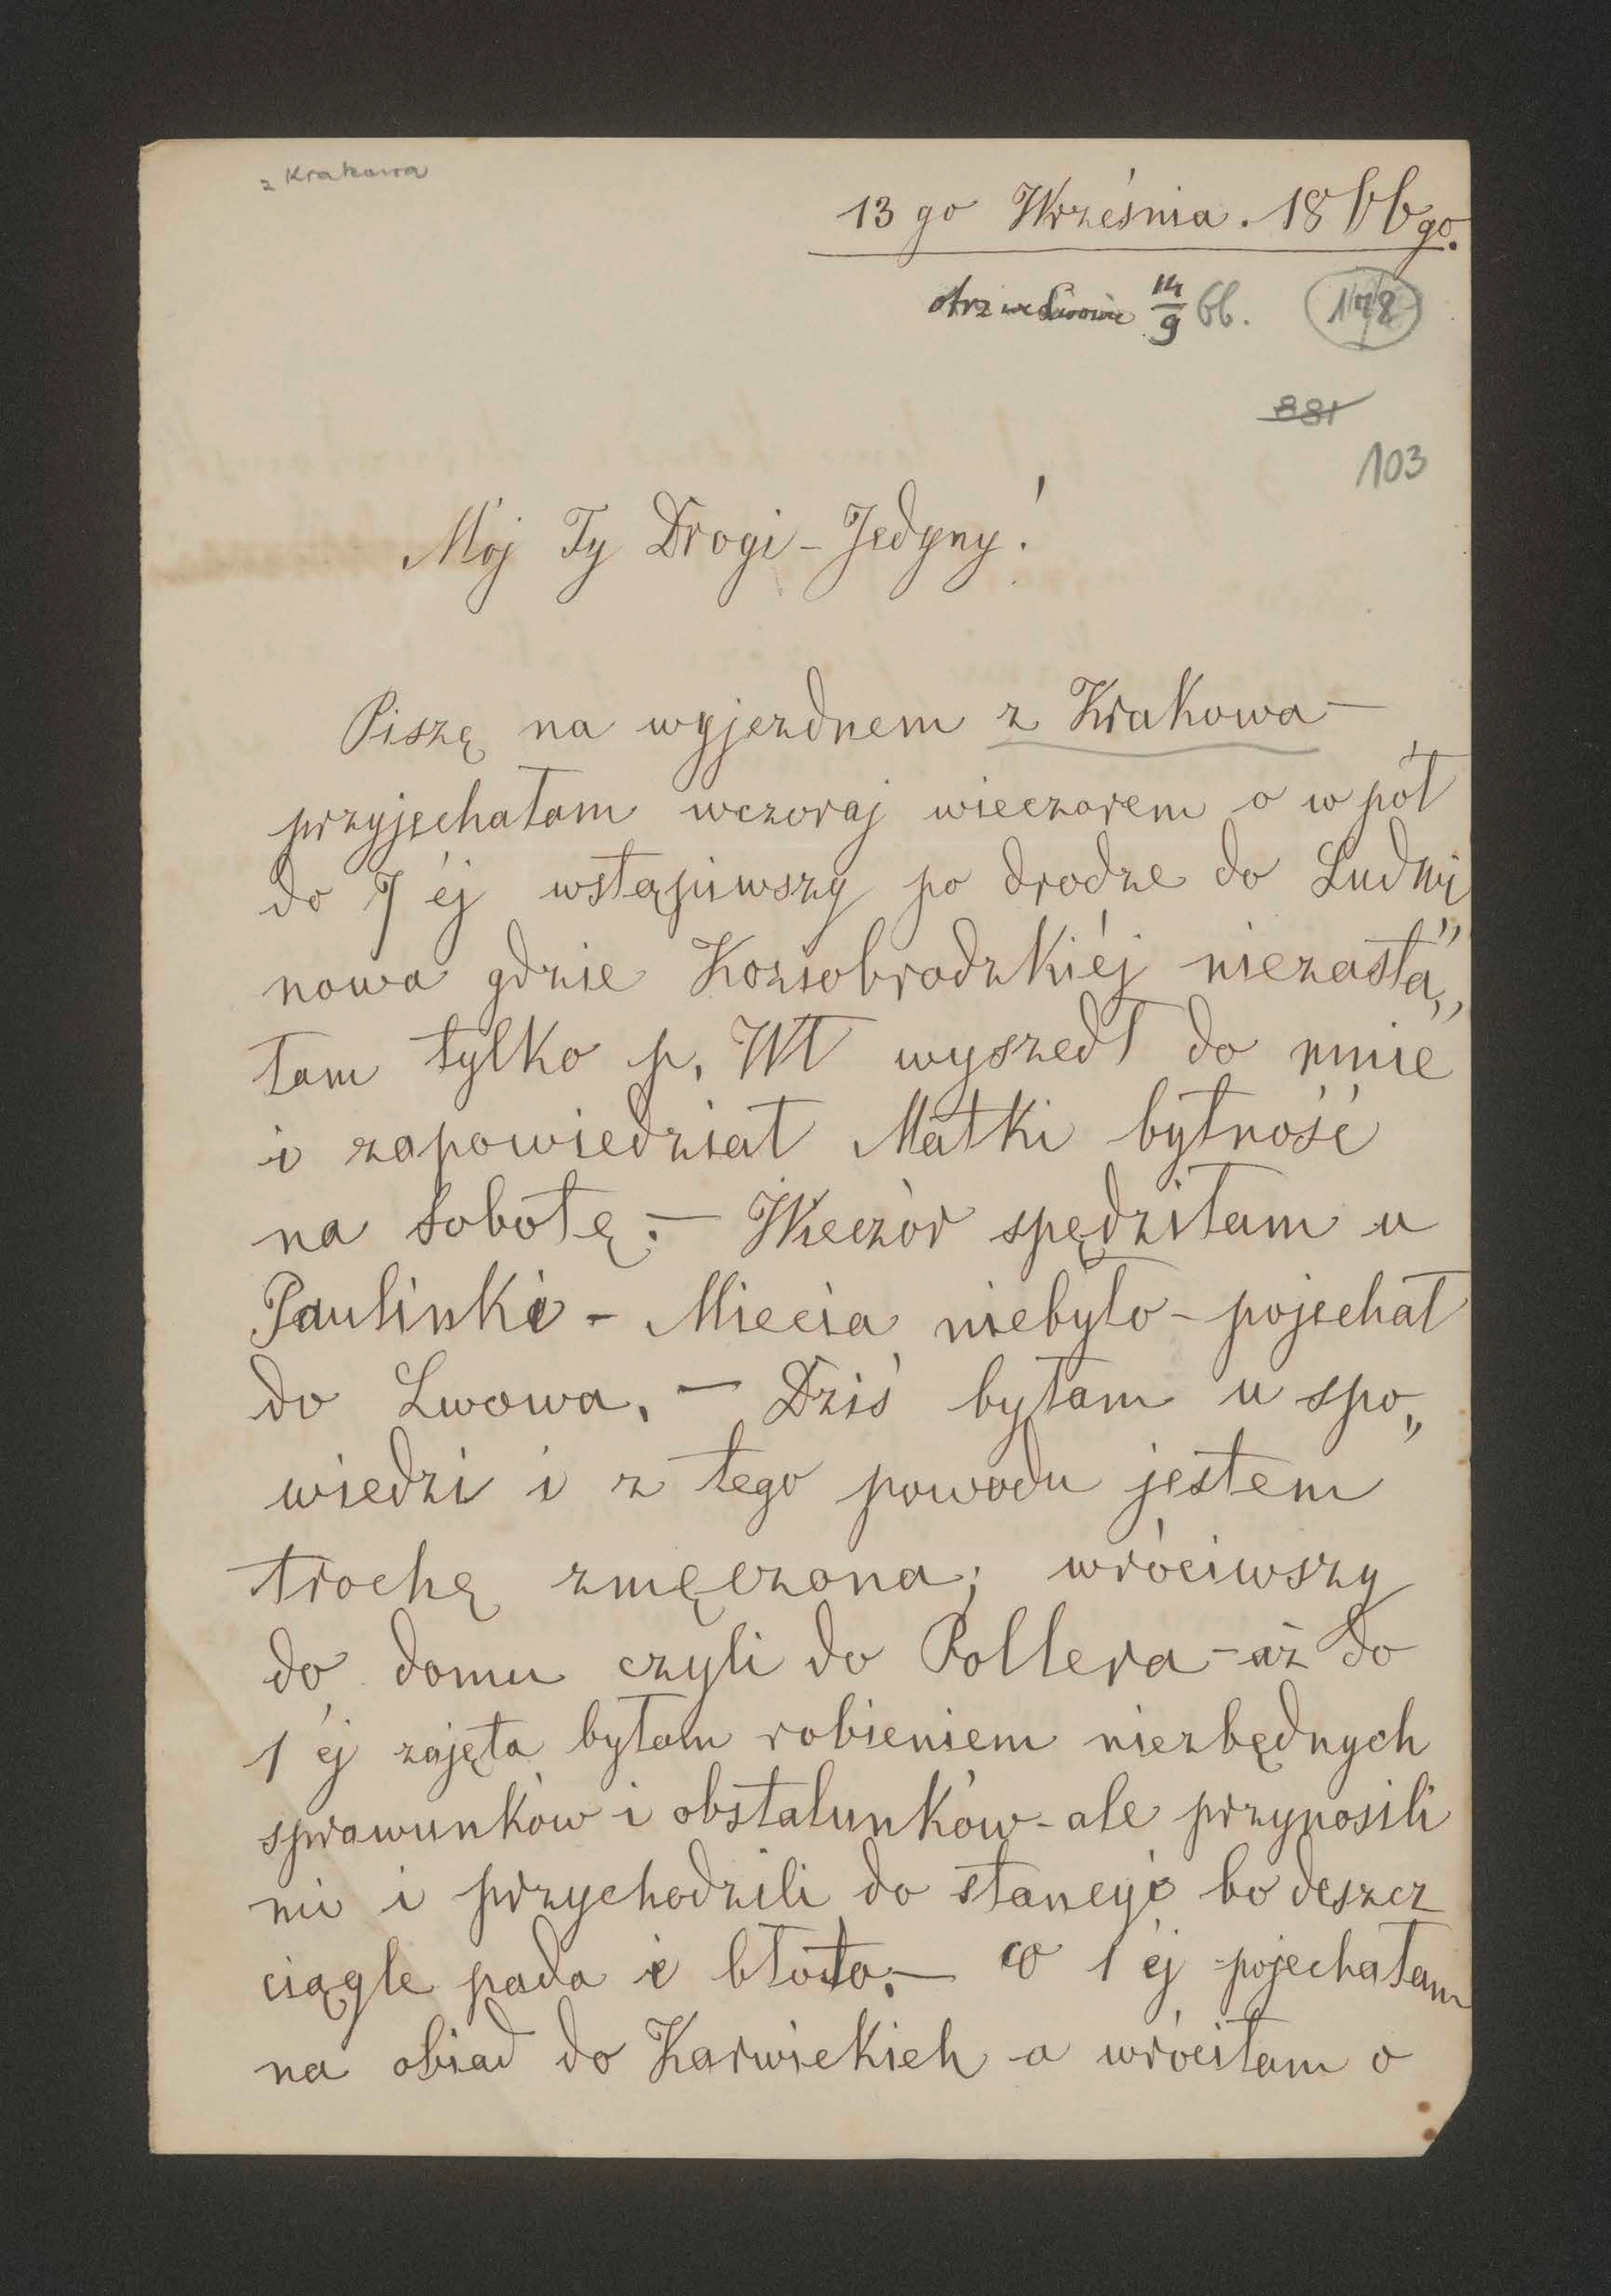 z Krakowa
13 go Września. 1866 go.
otrz we Lwowie 14/9 66.
178
881
103
Mój Ty Drogi - Jedyny!
Piszę na wyjezdnem z Krakowa —
przyjechałam wczoraj wieczorem o w pół
do 7 éj wstąpiwszy po drodze do Ludwi
nowa gdzie Koziobrodzkiéj niezasta„
łam tylko p. Wł wyszedł do mnie
i zapowiedział Matki bytność
na Sobotę. — Wieczór spędziłam u
Paulinki - Miecia niebyło - pojechał
do Lwowa. — Dziś byłam u spo„
wiedzi i z tego powodu jestem
trochę zmęczona; wróciwszy
do domu czyli do Pollera - aż do
1 éj zajęta byłam robieniem niezbędnych
sprawunków i obstalunków - ale przynosili
mi i przychodzili do stancyi bo deszcz
ciągle pada i błoto. — o 1 éj pojechałam
na obiad do Karwickich a wróciłam o